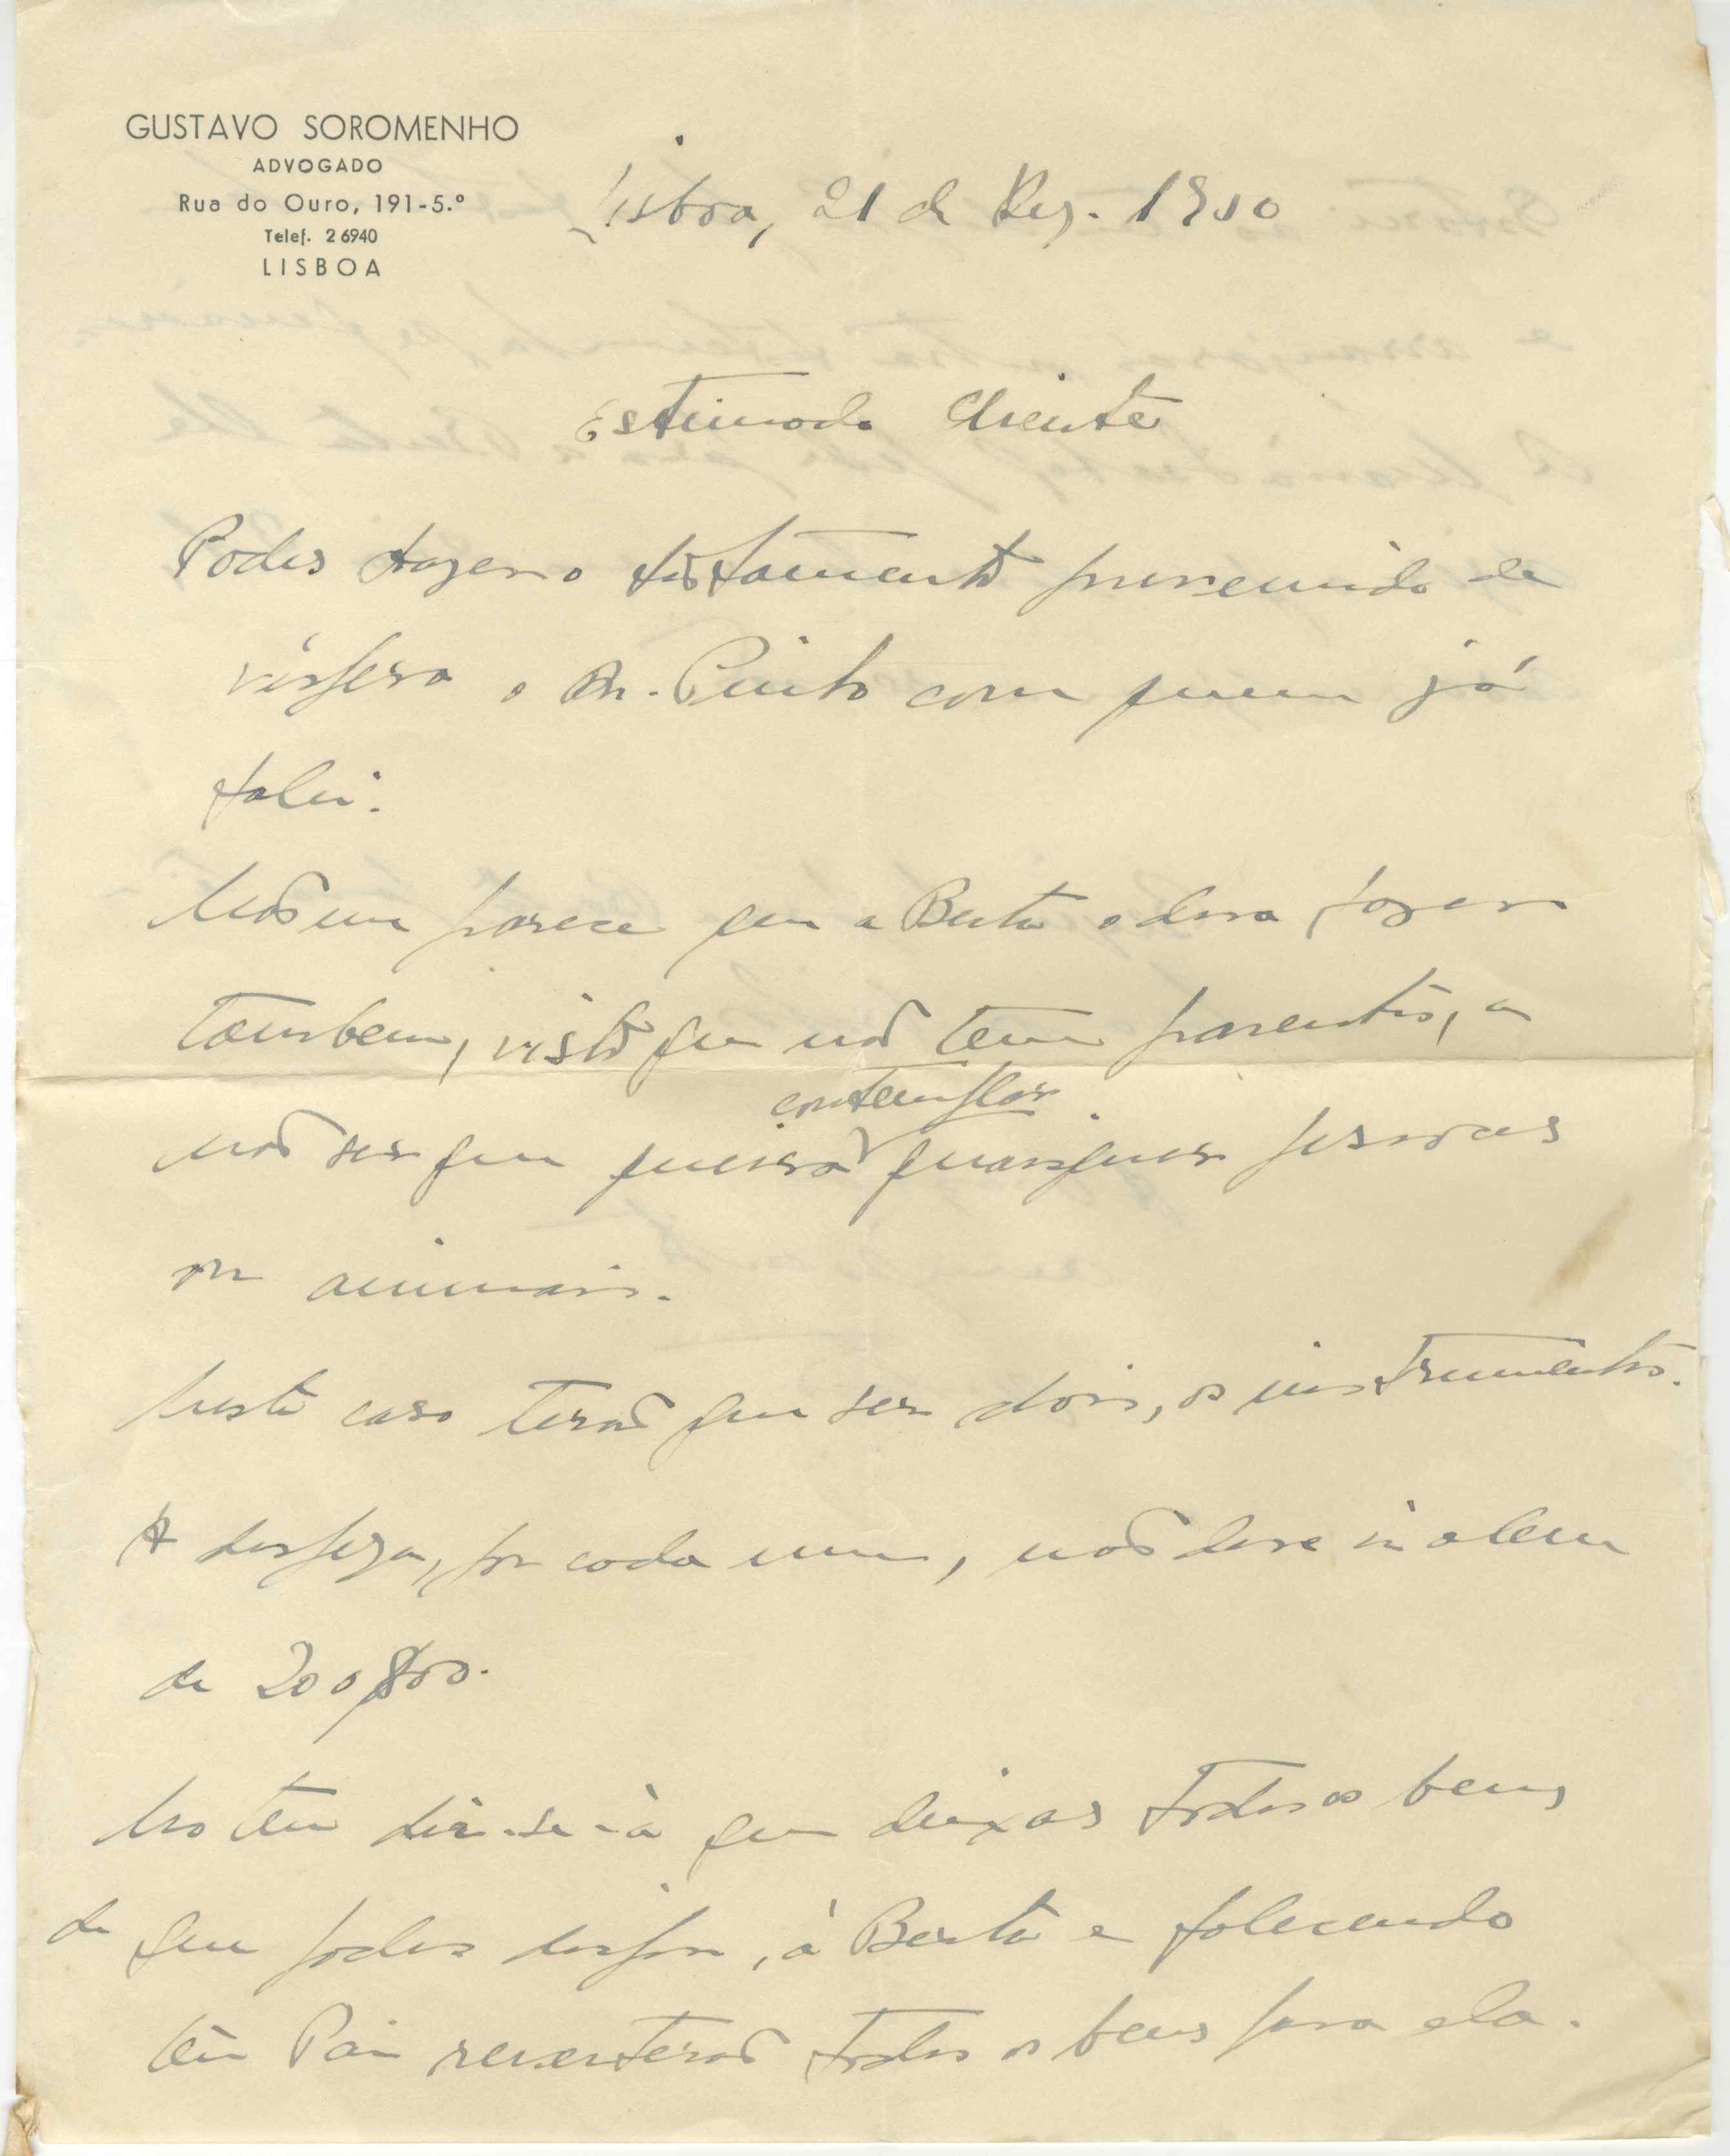 GUSTAVO SOROMENHO
ADVOGADO
Rua do Ouro, 191-5.º
Telef. 2 6940
LISBOA
Lisboa, 21 de Dez. 1950
Estimado Cliente
Podes fazer o testamento prevenindo de
véspera o Dr. Pinto com quem já
falei.
Não me parece que a Berta o deva fazer
tambem, visto que não tem parentes, a
contemplar
não ser que queira quaisquer pessoas
ou animais.
Neste caso terão que ser dois, os instrumentos.
A despeza, por cada um, não deve ir alem
de 200$00.
No teu dir-se-à que deixas todos os bens
de que podes dispor, à Berta e falecendo
teu Pai reverterão todos os bens para ela.